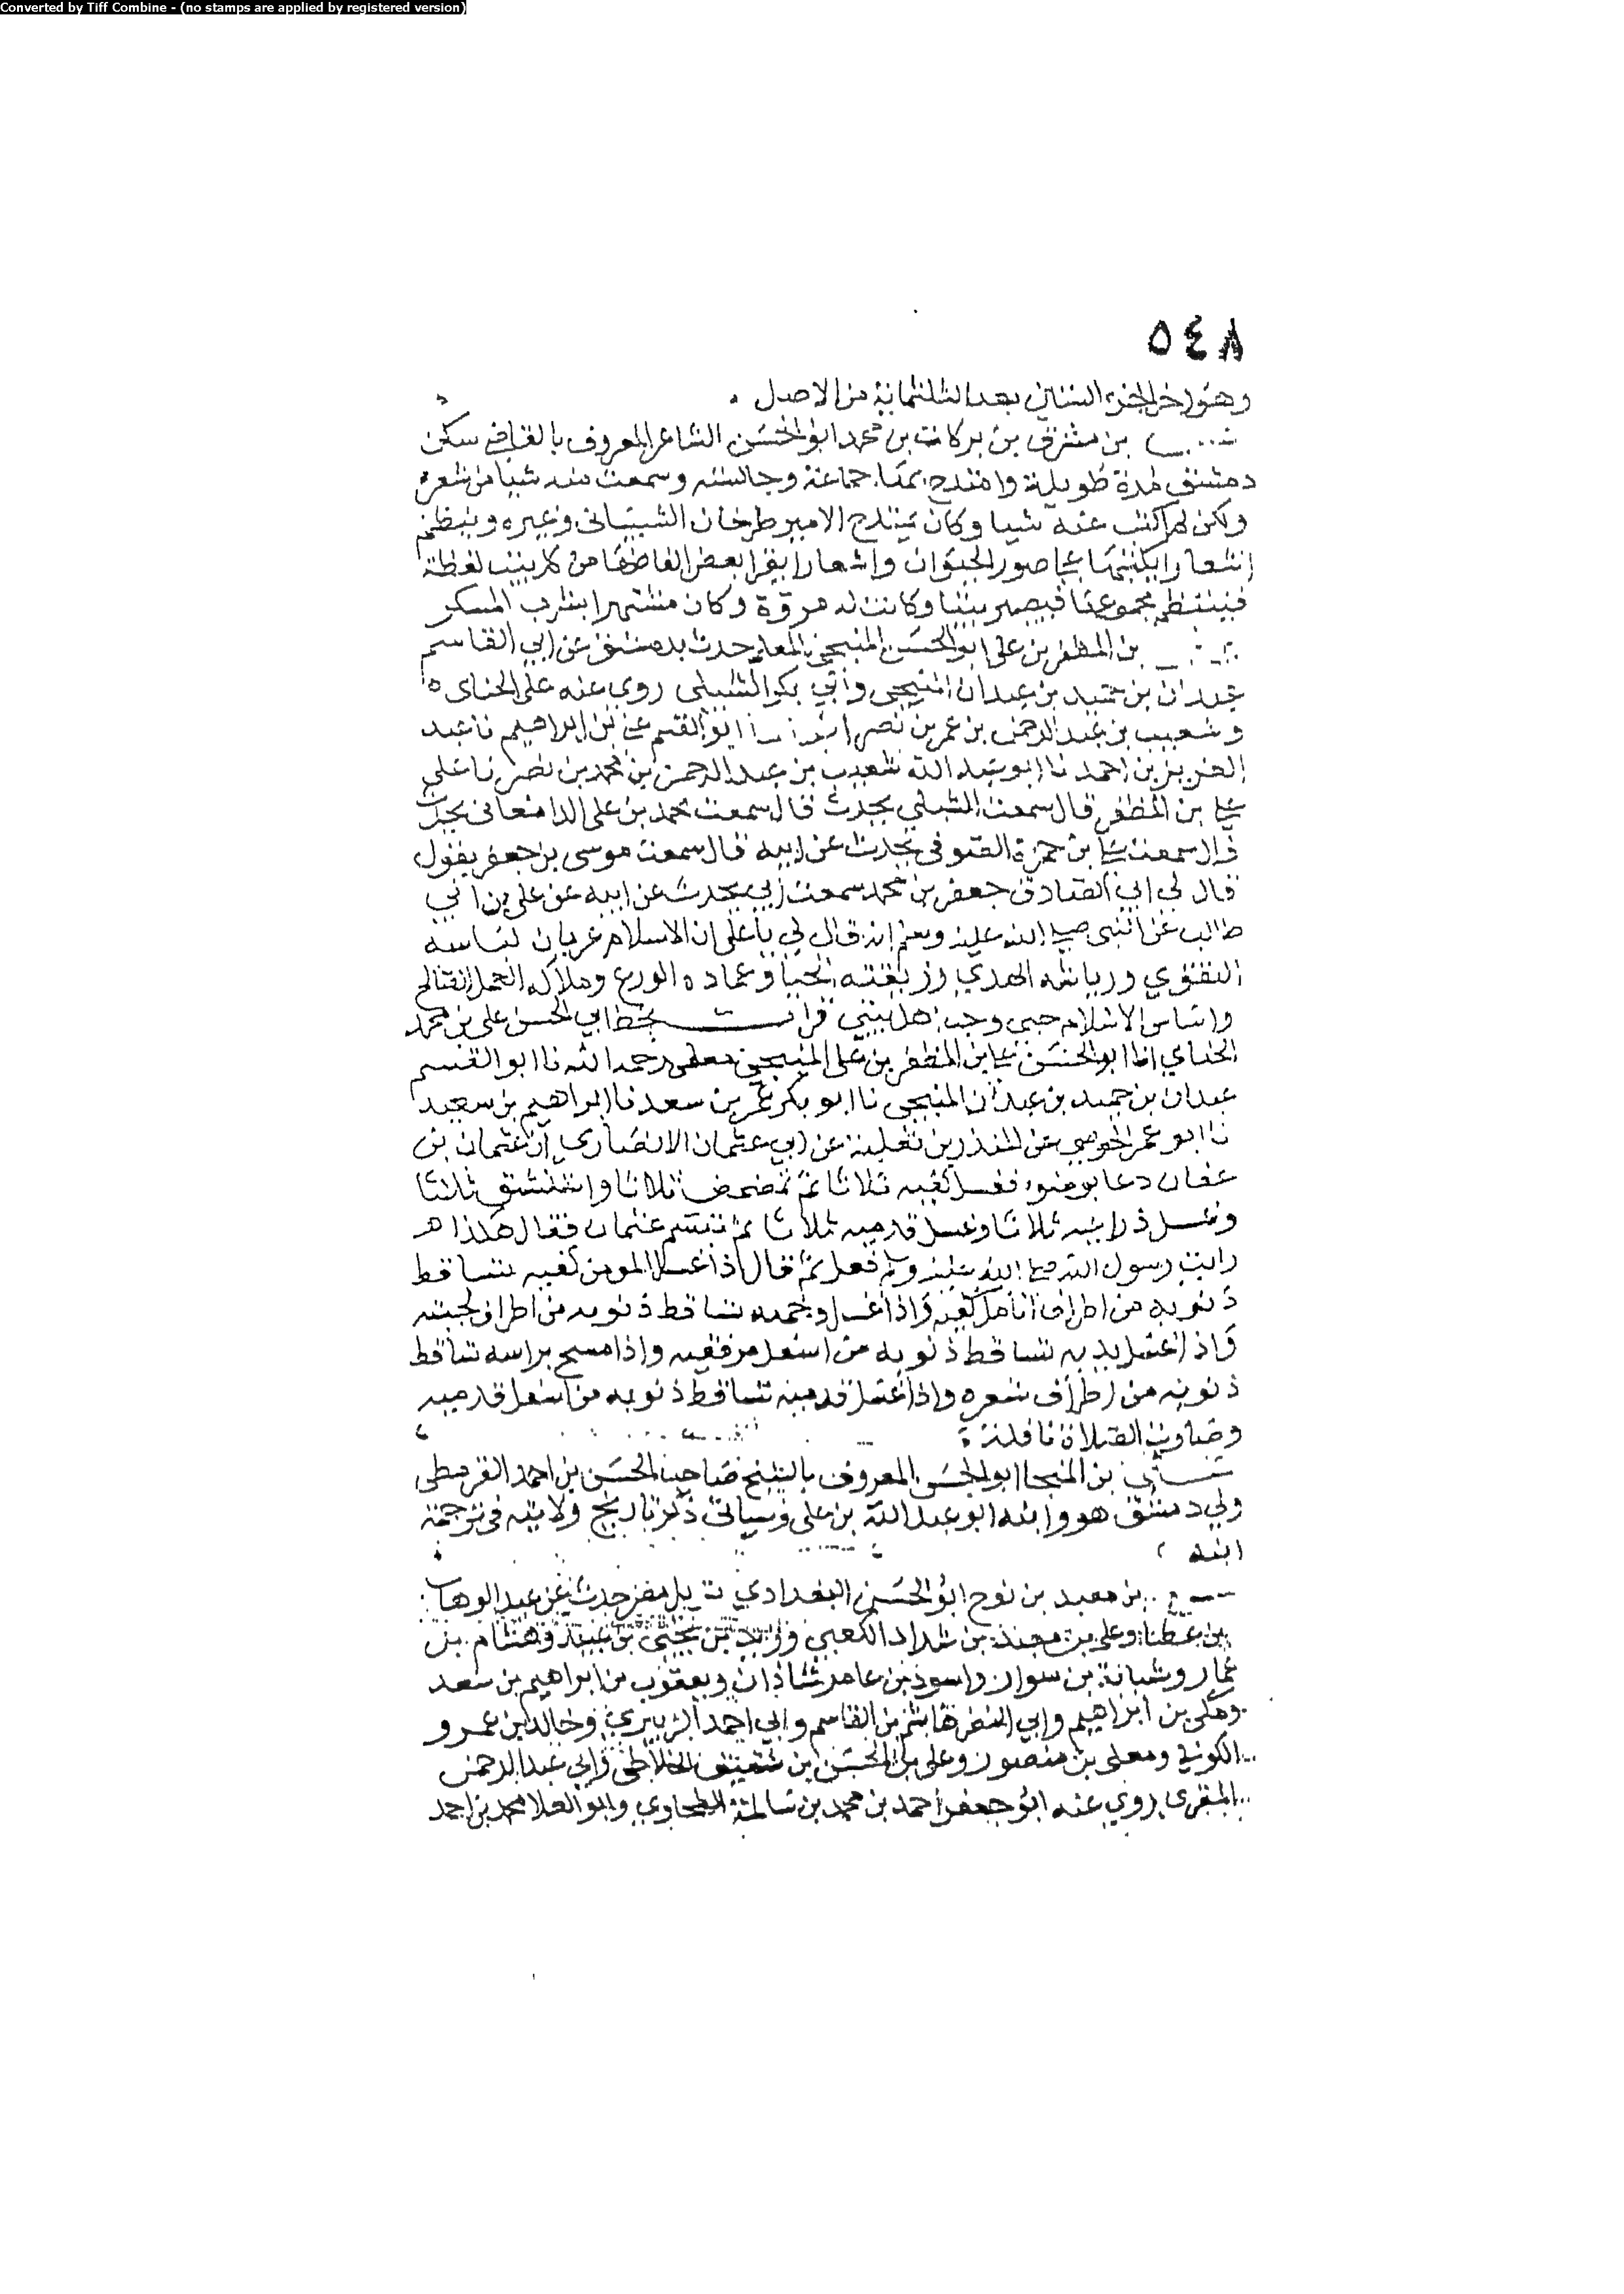 Converted by Tiff Combine - (no stamps are applied by registered version)
٥٤٨
وهو اخر الجزء الثاني بعد الثلثمائة من الاصل
بن مشرف بن بركات بن محمد ابو الحسن الشاعر المعروف سكن
دمشق مدة طويلة وامتدح بها جماعة وجالسته وسمعت منه شيا من شعره
ولكن لم اكتب عنه شيا وكان يمتدح الامير طرخان الشيباني وغيره وينظم
اشعارا يكتبها على صور الحيوان واشعارا يقرا بعض الفاظها من كل بيت لفظة
فينتظم مجموعها فيصير بيتا وكانت له مروة وكان مشتهرا بشرب المسكر
بن المظفر بن علي ابو الحسن المنبجي المعلم حدث بدمشق عن ابي القاسم
عبدان بن حميد بن عبدان المنبجي وابي بكر الشبلي روى عنه علي الحناي
وشعيب بن عبد الرحمن بن عمر بن نصر ابو القسم علي بن ابراهيم نا عبد
العزيز بن احمد نا ابو عبد الله شعيب بن عبد الرحمن بن محمد بن نصر نا علي
علي بن المظفر قال سمعت الشبلي يحدث قال سمعت محمد بن علي الدامغاني يحدث
قال سمعت علي بن حمزة الصوفي يحدث عن ابيه قال سمعت موسى بن جعفر يقول
قال لي ابي الصادق جعفر بن محمد سمعت ابي يحدث عن ابيه عن علي بن ابي
طالب عن النبي صلى الله عليه وسلم انه قال لي يا علي ان الاسلام عريان لباسه
التقوي ورياشه الهدي وزينته الحيا وعماده الورع وملاكه العمل الصالح
واساس الاسلام حبي وحب اهل بيتي قرات بخط ابي الحسن علي بن محمد
الحناي انا ابو الحسن علي بن المظفر بن علي المنبجي رحمه الله نا ابو القسم
عبدان بن حميد بن عبدان المنبجي نا ابو بكر عمر بن سعد نا ابراهيم بن سعيد
نا ابو عمر الحوضي عن المنذر بن ثعلبة عن ابي عثمان الانصاري ان عثمان بن
عفان دعا بوضوء فغسل كفيه ثلاثا ثم تمضمض ثلاثا واستنشق ثلاثا
وغسل ذراعيه ثلاثا وغسل قدميه ثلاثا ثم تبسم عثمان فقال هكذا
رايت رسول الله صلى الله عليه وسلم فعل ثم قال اذا غسل المومن كفيه تساقط
ذنوبه من اطراف انامل كفيه واذا غسل وجهه تساقط ذنوبه من اطراف لحيته
واذا غسل يديه تساقط ذنوبه من اسفل مرفقيه واذا مسح براسه تساقط
ذنوبه من اطراف شعره واذا غسل قدميه تساقط ذنوبه من اسفل قدميه
وصارت الصلاة نافلة
بن المنجا ابو الحسن المعروف بالشيخ صاحب الحسن بن احمد القرمطي
ولي دمشق هو وابنه ابو عبد الله بن علي وسياتي ذكر تاريخ ولايته في ترجمة
ابنه
بن معبد بن نوح ابو الحسن البغدادي نزيل مصر حدث عن عبد الوهاب
بن عطا وعلي بن معبد بن شداد وزيد بن يحيى بن عبيد وهشام بن
عمار وشبابة بن سوار واسود بن عامر شاذان ويعقوب بن ابراهيم بن سعد
ومكي بن ابراهيم وابي النضر هاشم بن القاسم وابي احمد الزبيري وخالد بن عمرو
الكوفي ومعلى بن منصور وعلي بن الحسن بن شقيق وابي عبد الرحمن
المقري روي عنه ابو جعفر احمد بن محمد بن سلامة الطحاوي وابو العلا محمد بن احمد